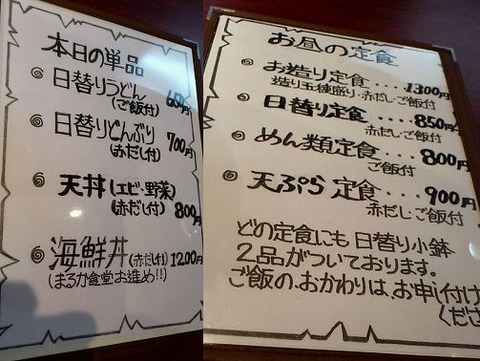 本日の単品
日替りうどん 650円
(ご飯付)
日替りどんぶり 700円
(赤だし付)
天丼(エビ、野菜) 800円
(赤だし付)
海鮮丼(赤だし付) 1200円
(まるか食堂お進め!!)
お昼の定食
お造り定食....1300円
造り五種盛り・赤だし・ご飯付
日替り定食...850円
赤だし・ご飯付
めん類定食...800円
ご飯付
天ぷら定食...900円
赤だし・ご飯付
どの定食にも日替り小鉢
2品がついております。
ご飯の、おかわりは、お申し付け
くださ